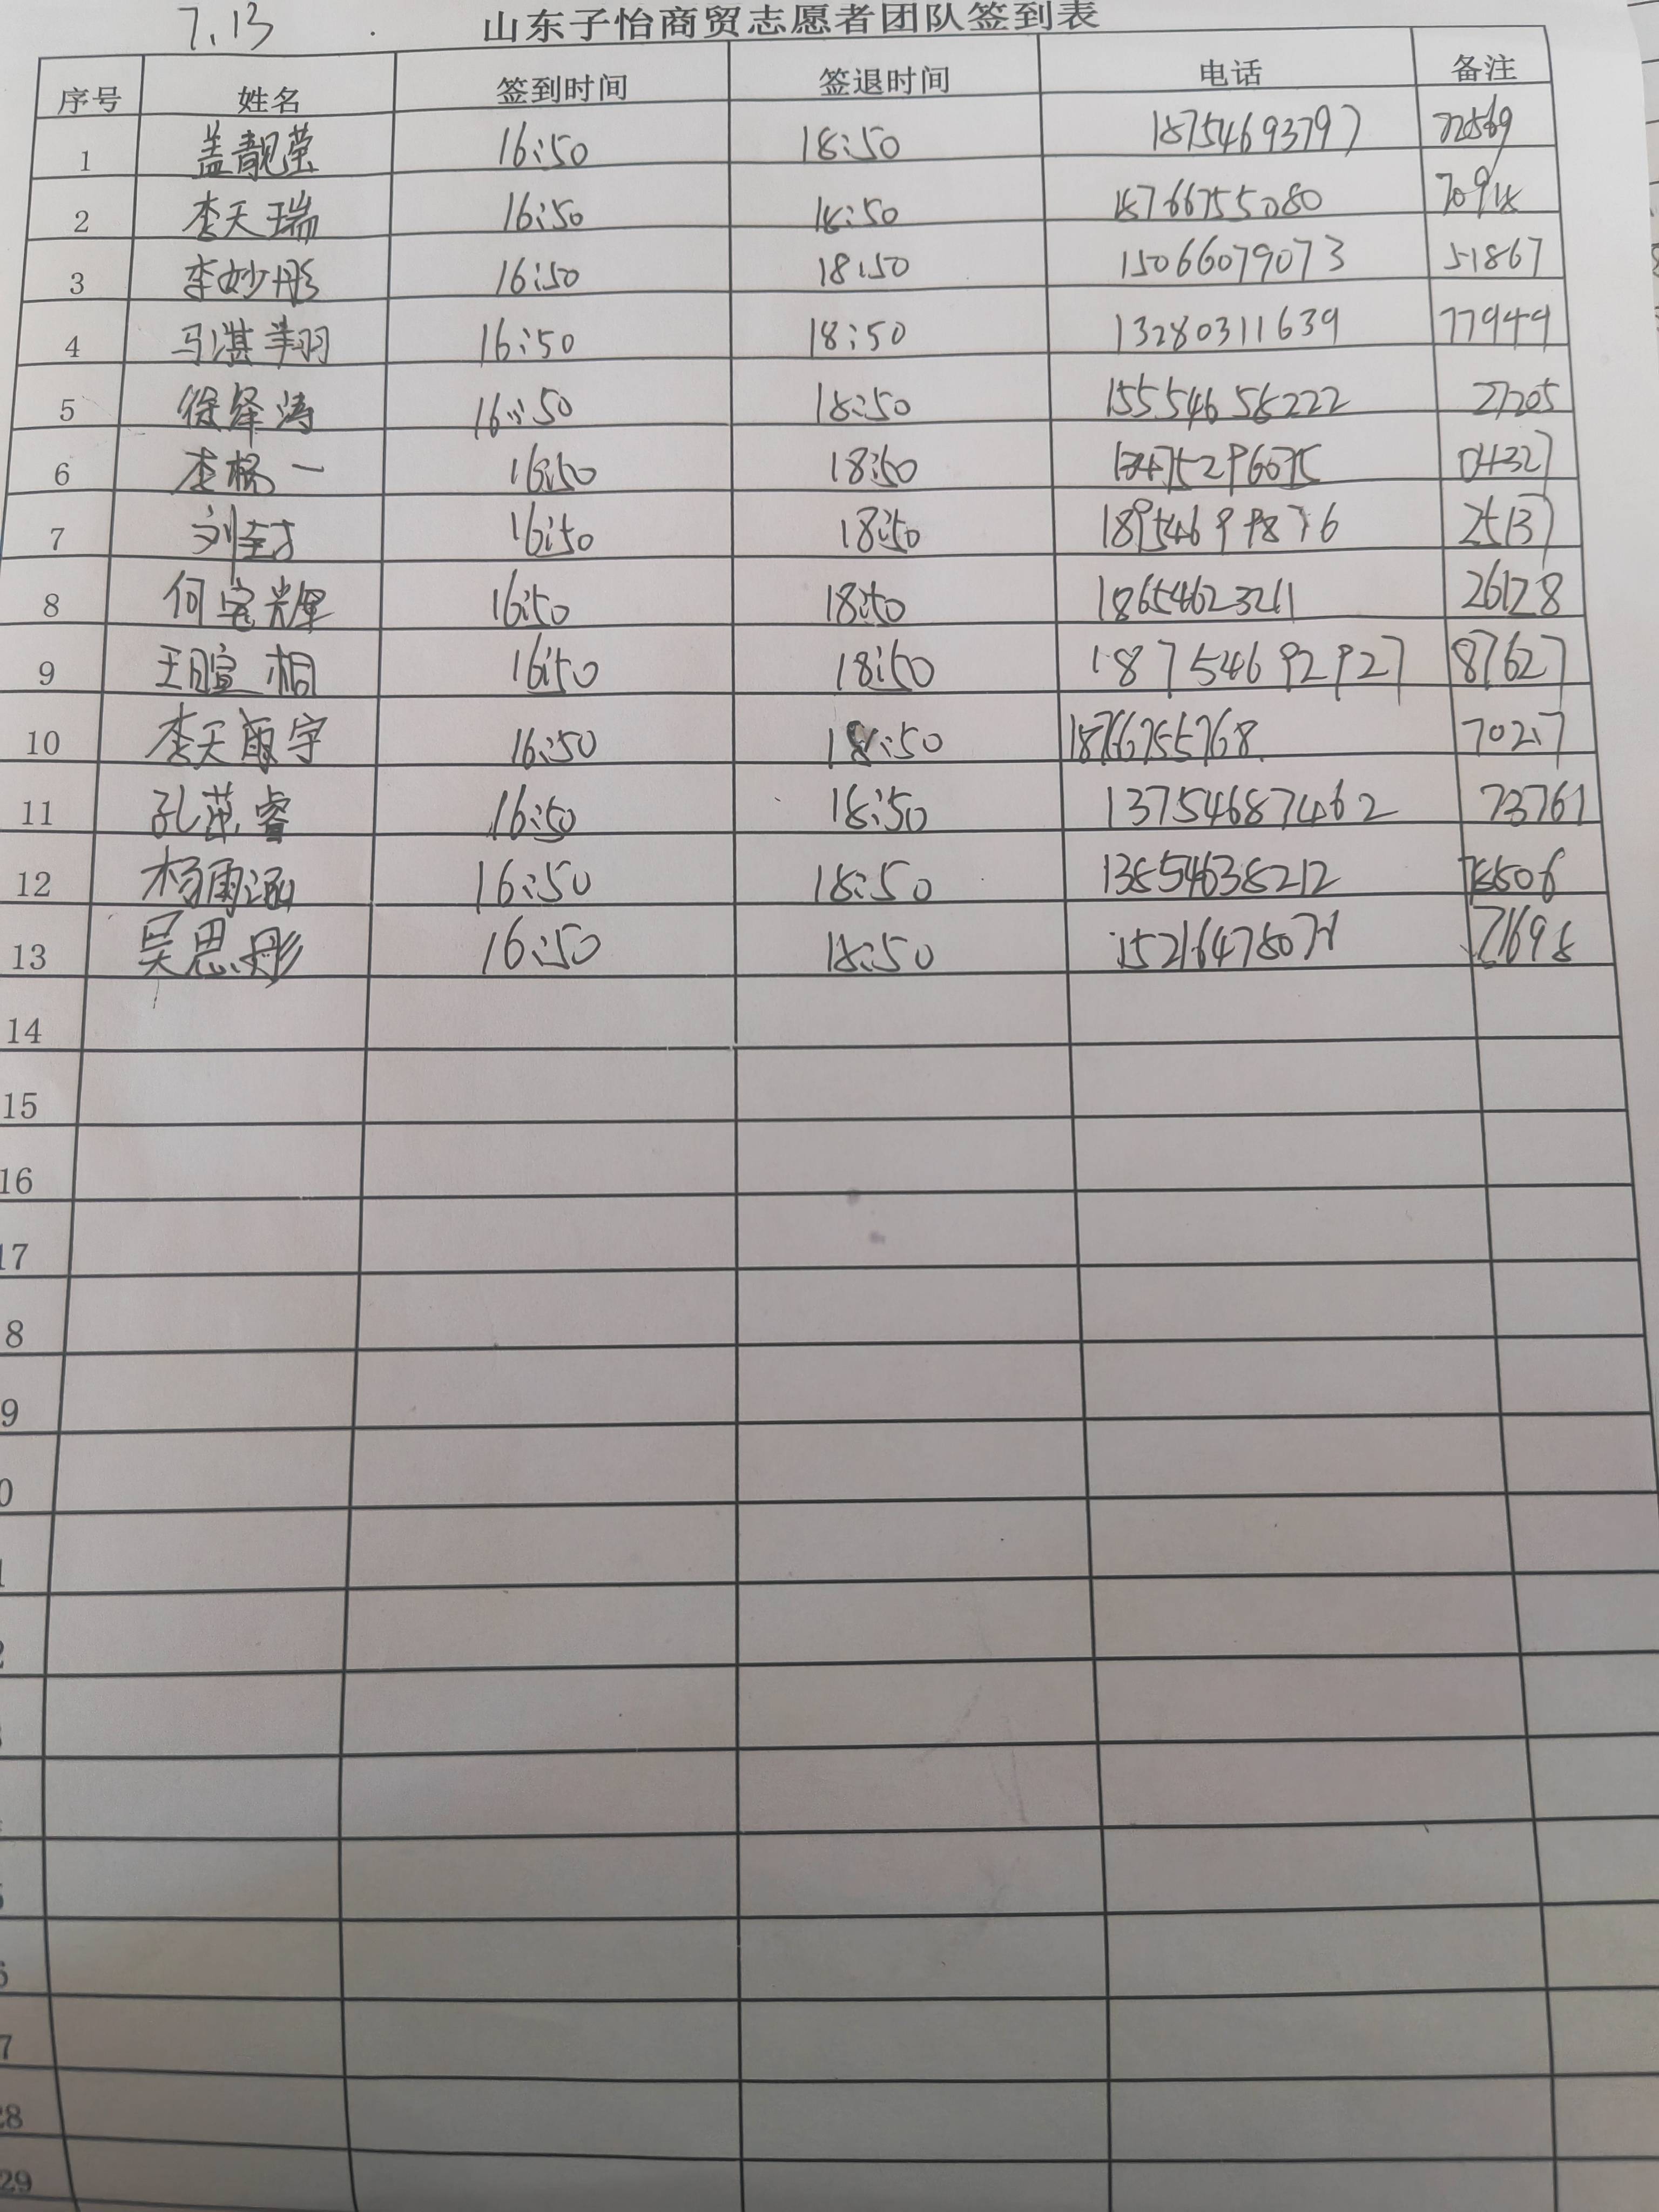 7.13
山东子怡商贸志愿者团队签到表
序号 姓名 签到时间 签退时间 电话 备注
1 盖靓莹 16:50 18:50 18754693797 72569
2 李天瑞 16:50 18:50 18766755080 70918
3 李妙彤 16:50 18:50 15066079073 51867
4 马淇羽 16:50 18:50 13280311639 77949
5 徐绎涛 16:50 18:50 15554656222 27205
6 李杨一 16:50 18:50 04327
7 刘 16:50 18:50 18954699876 25137
8 何宝辉 16:50 18:50 18654623211 26128
9 王暄桐 16:50 18:50 18754692927 87627
10 李天宇 16:50 18:50 18766755768 70217
11 孔睿 16:50 18:50 13754687462 73761
12 杨雨涵 16:50 18:50 13854638212 78506
13 吴思彤 16:50 18:50 71698
14
15
16
17
8
9
0
1
2
7
28
29